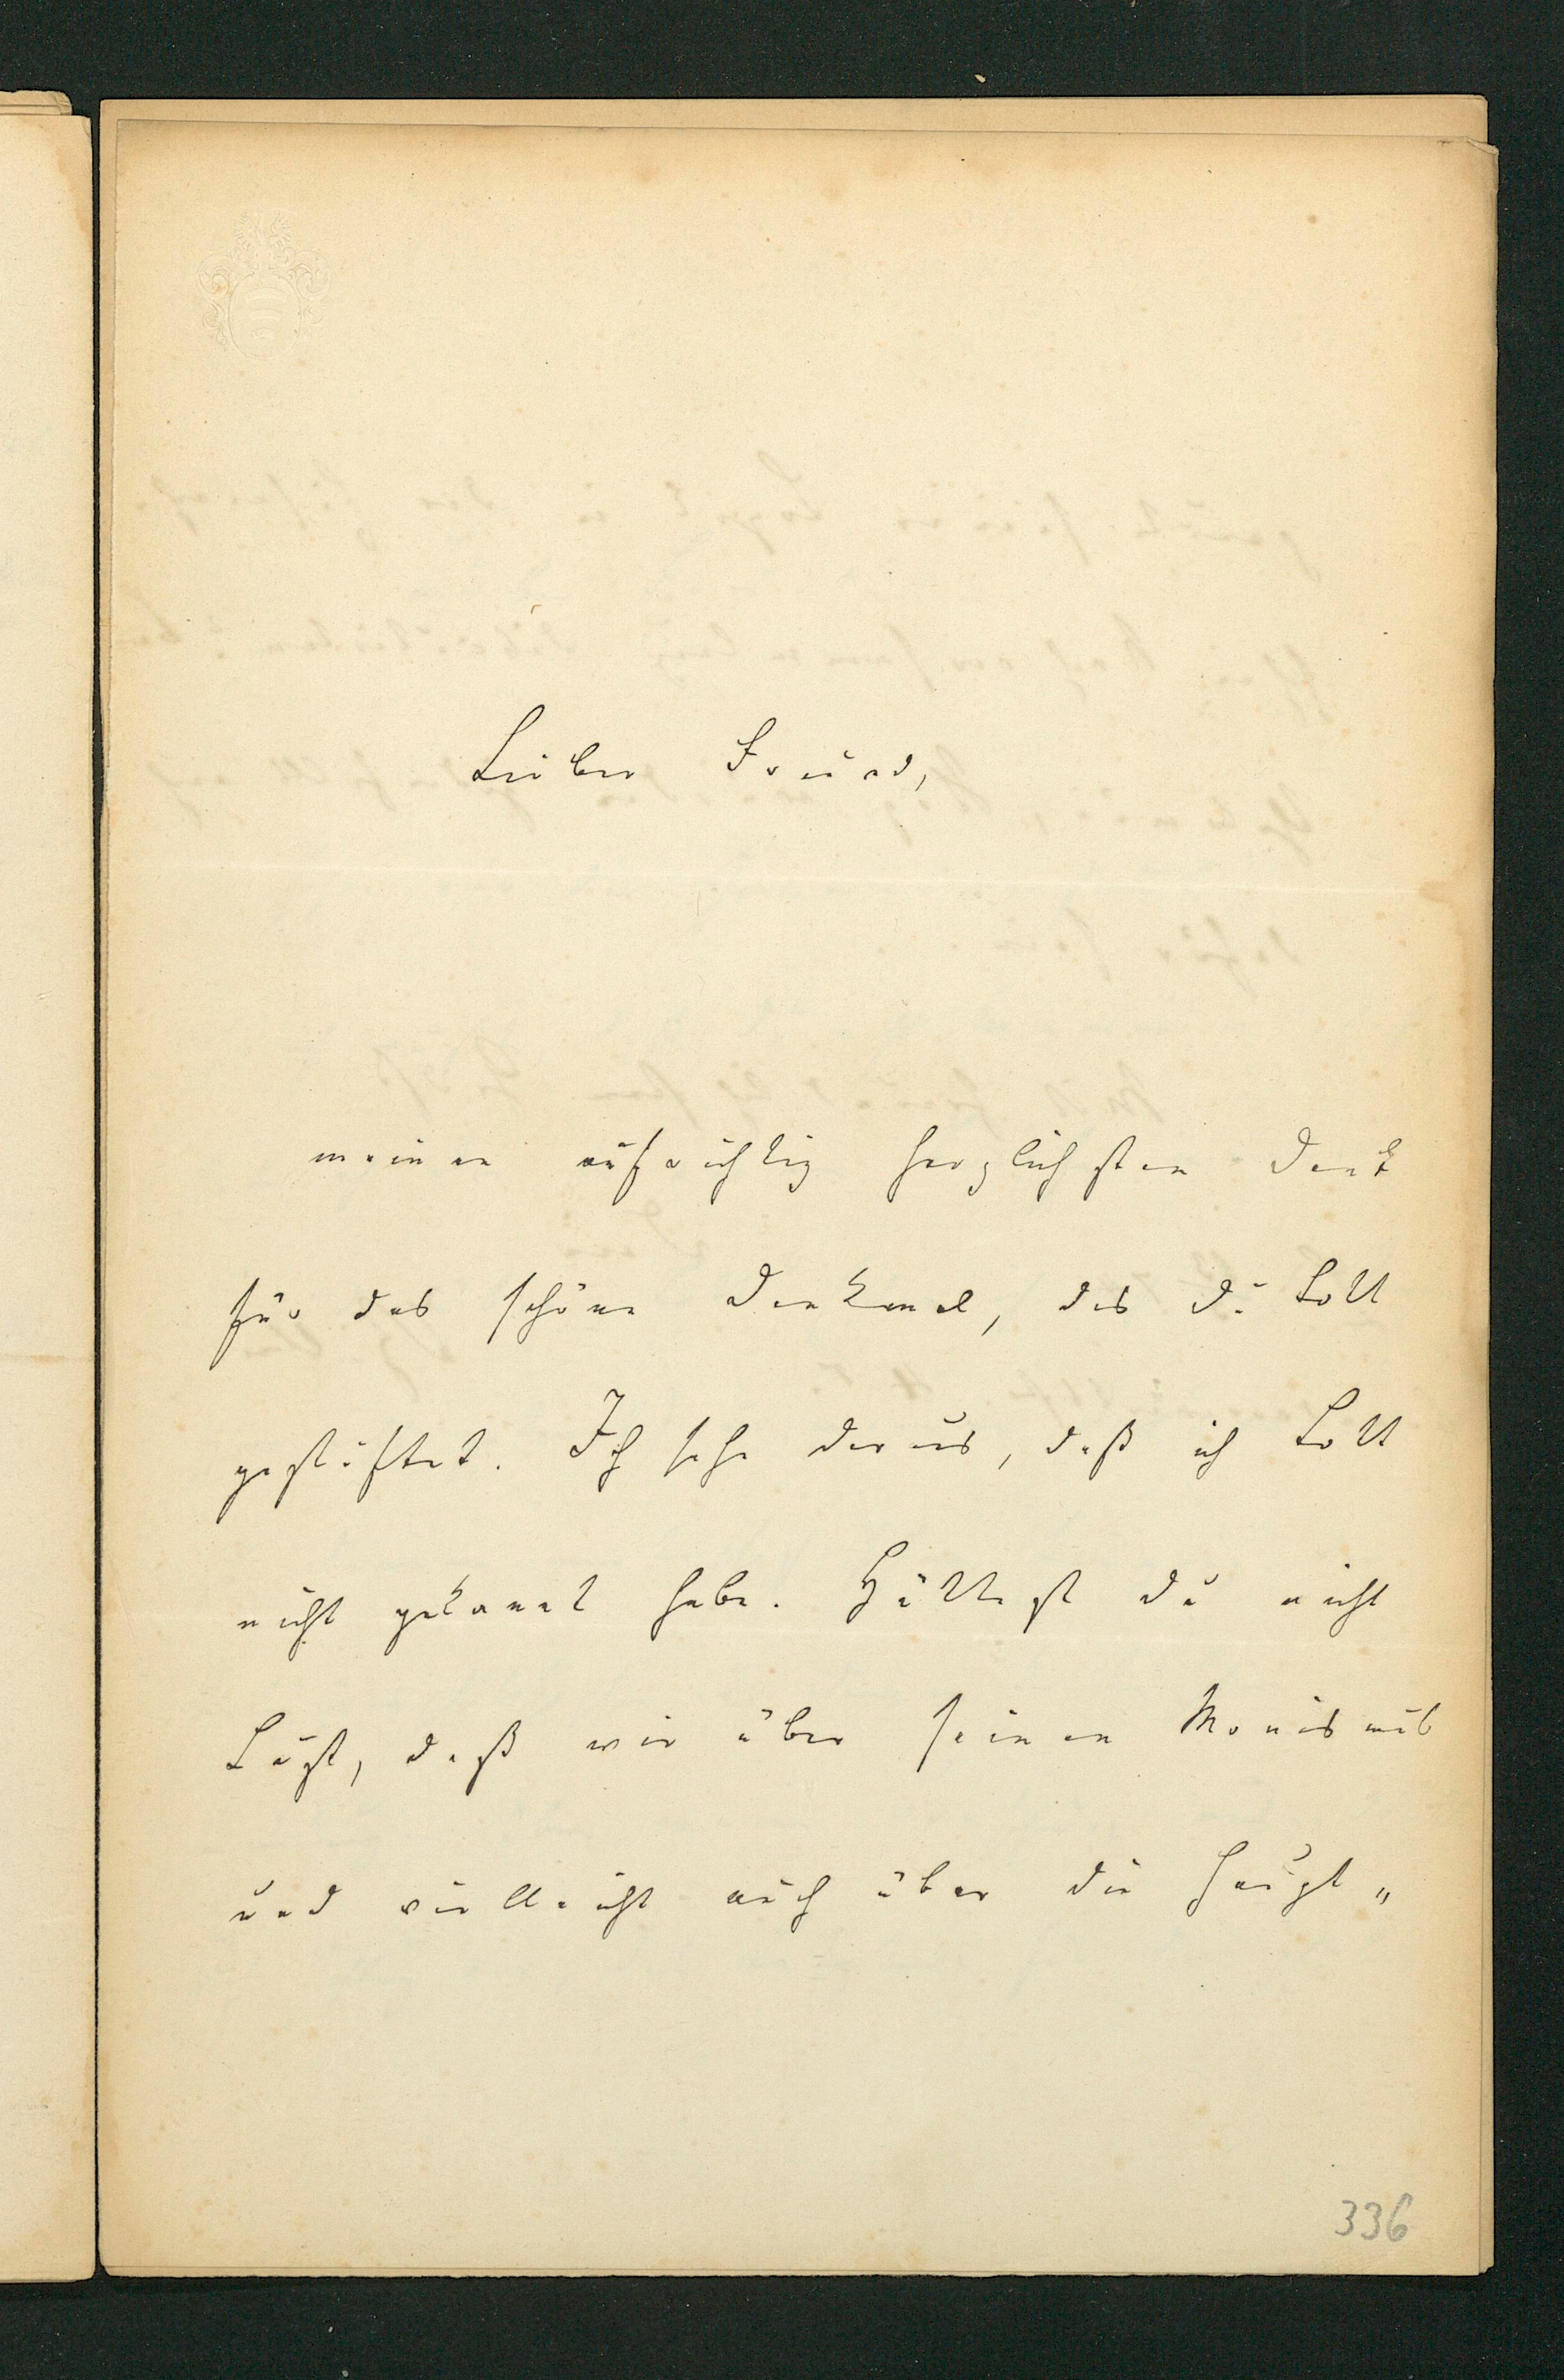 Lieber Freund,
meinen aufrichtig herzlichsten Dank
für das schöne Denkmal, das du Lott
gestiftet. Ich sehe daraus, daß ich Lott
nicht gekannt habe. Hättest du nicht
Lust, daß wir über seinen Monismus
und vielleicht auch über die Haupt„
336